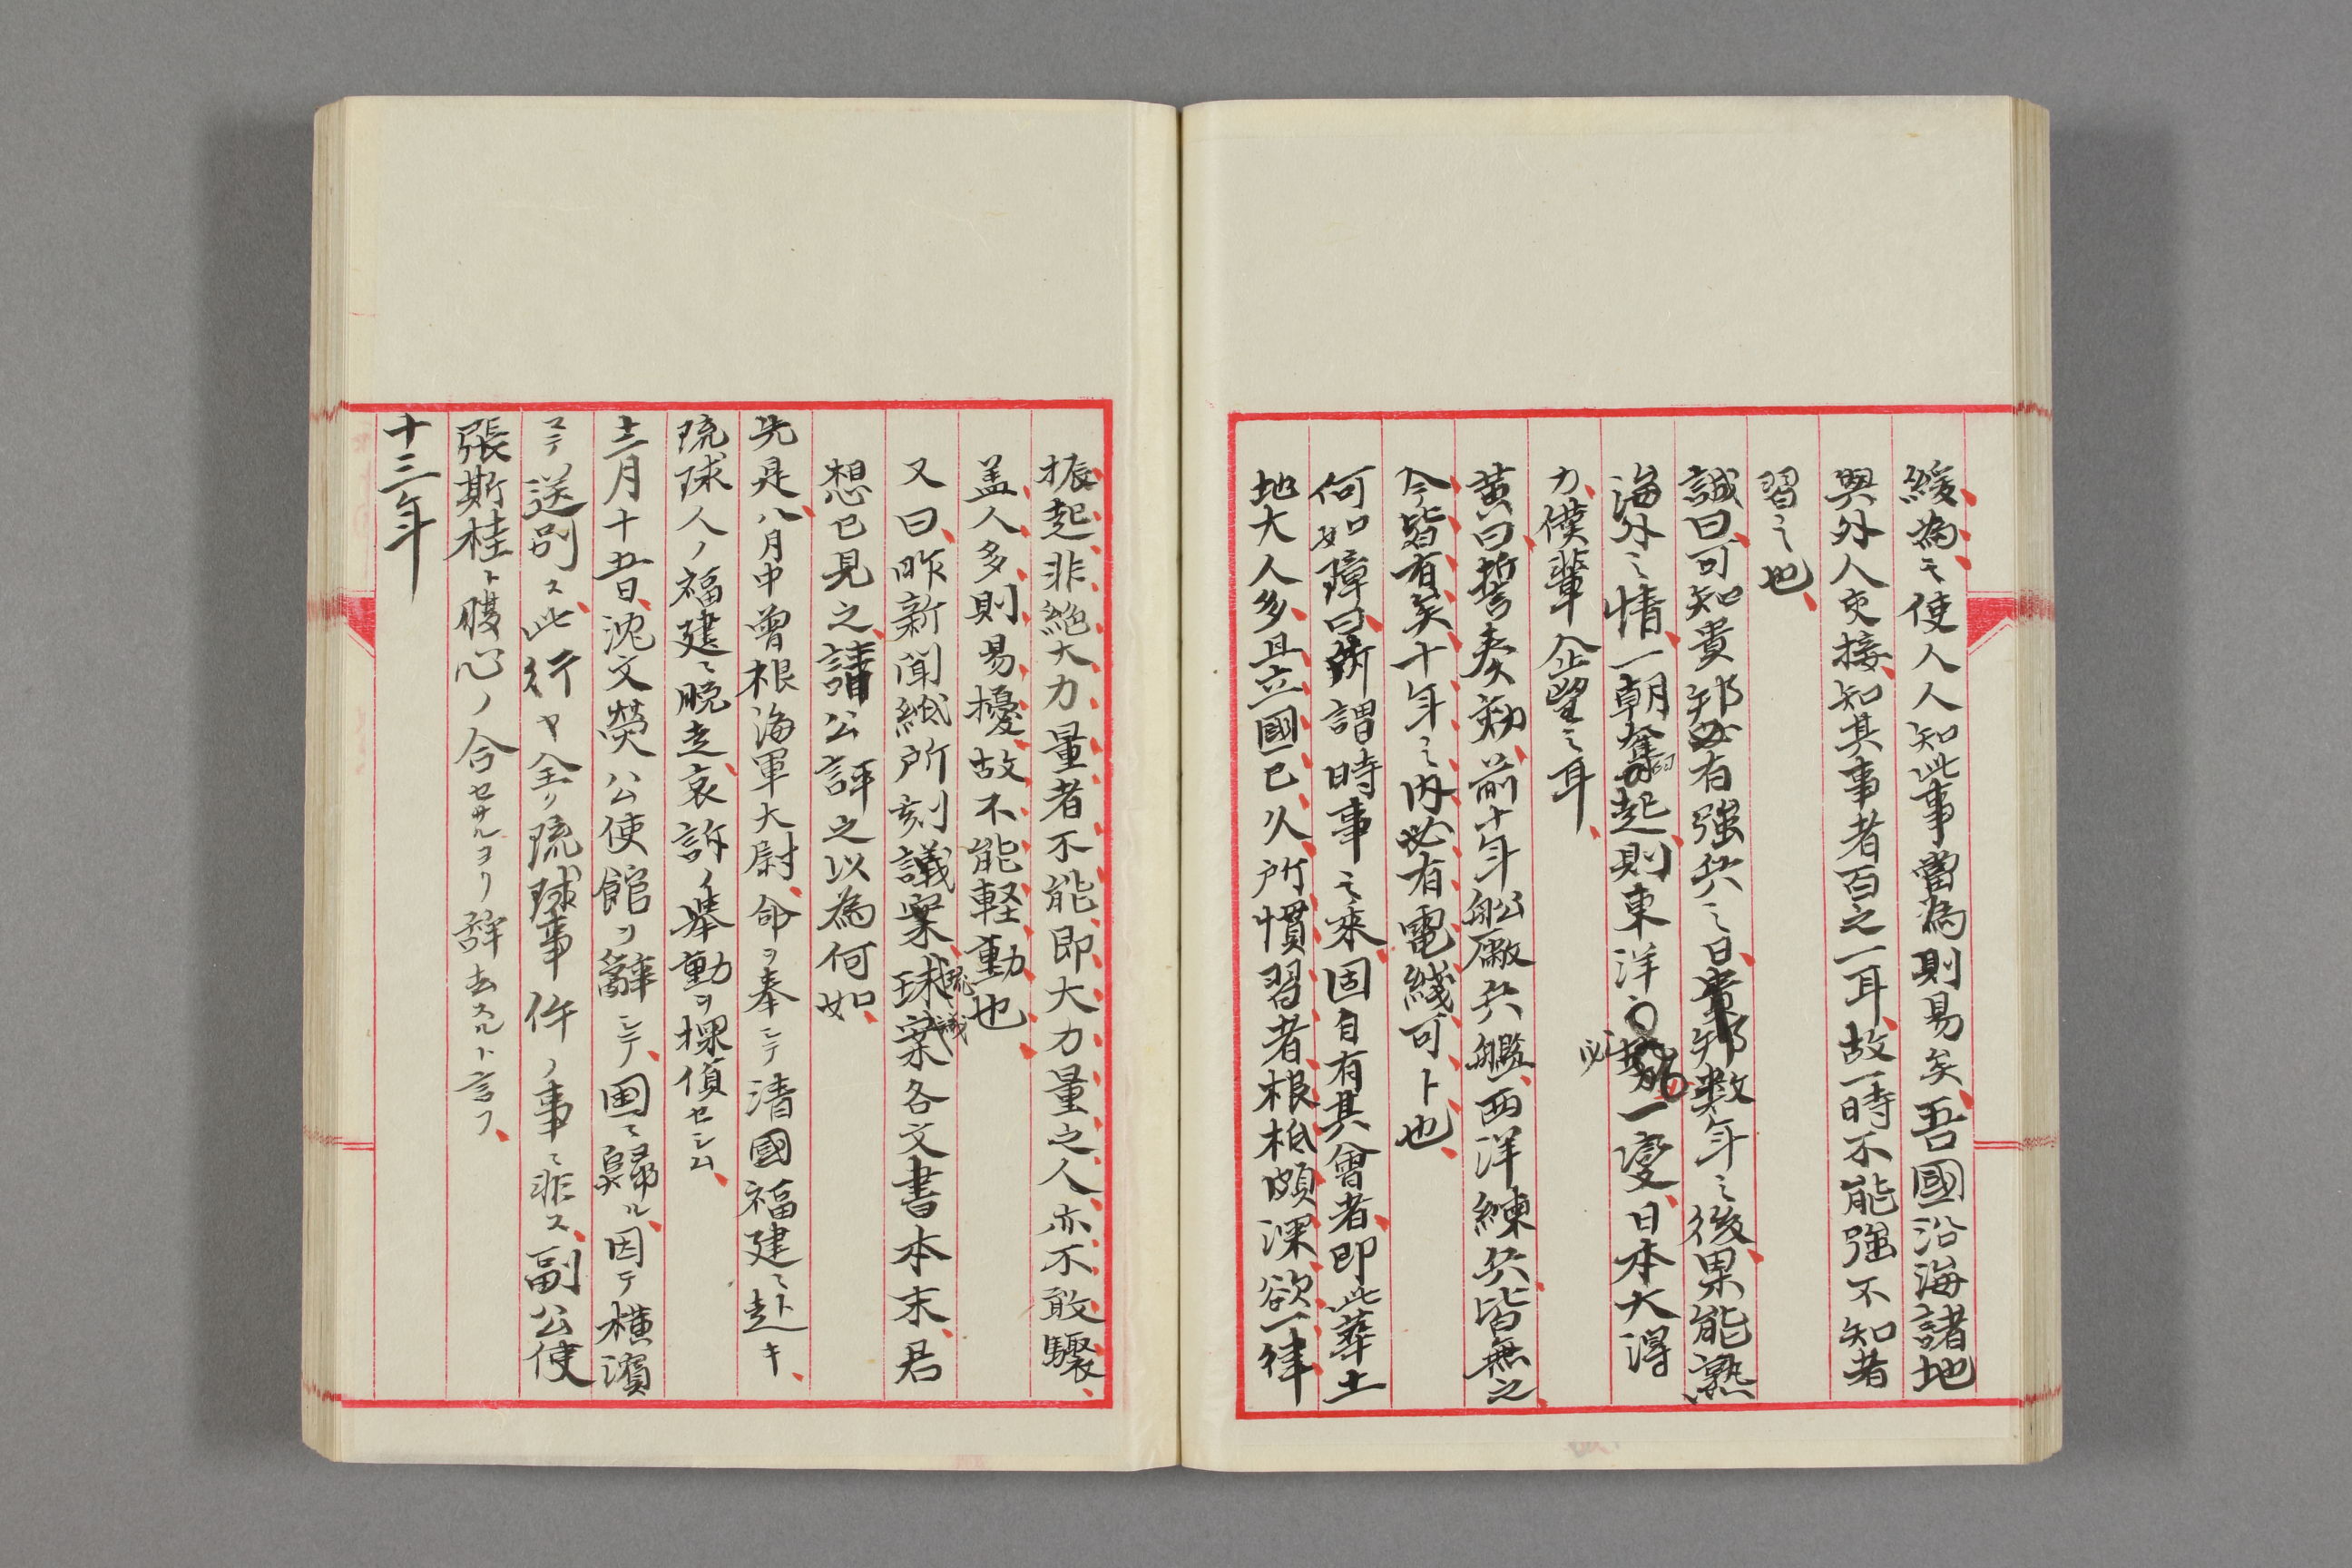 緩為之使人人知此事當為則易矣吾國沿海諸地
與外人交接知其事者百之一耳故一時不能強不知者
習之也
誠曰可知貴邦必有強兵之日貴邦数年之後果能熟
海外之情一朝奮起則東洋之勢必一變日本大得
力僕輩企望之耳
黄曰誓奏効前十年船廠兵艦西洋練兵皆無之
今皆有矣十年之内必有電綫可卜也
何如璋曰所謂時事之來固自有其會者即此華土
地大人多且立國已久所慣習者根柢頗深欲一律
振起非絶大力量者不能即大力量之人亦不敢驟
盖人多則易擾故不能軽動也
又曰昨新聞紙所刻議案琉球議案各文書本末君
想已見之請公評之以為何如
先是八月中曽根海軍大尉命ヲ奉シテ清國福建ニ赴キ
琉球人ノ福建ニ脱走哀訴ノ挙動ヲ探偵セシム
十二月十五日沈文熒公使館ヲ辭シテ国ニ歸ル因テ横濱
マテ送別ス此行ヤ全ク琉球事件ノ事ニ非ス副公使
張斯桂ト腹心ノ合セサルヨリ辞去スルト言フ
十三年